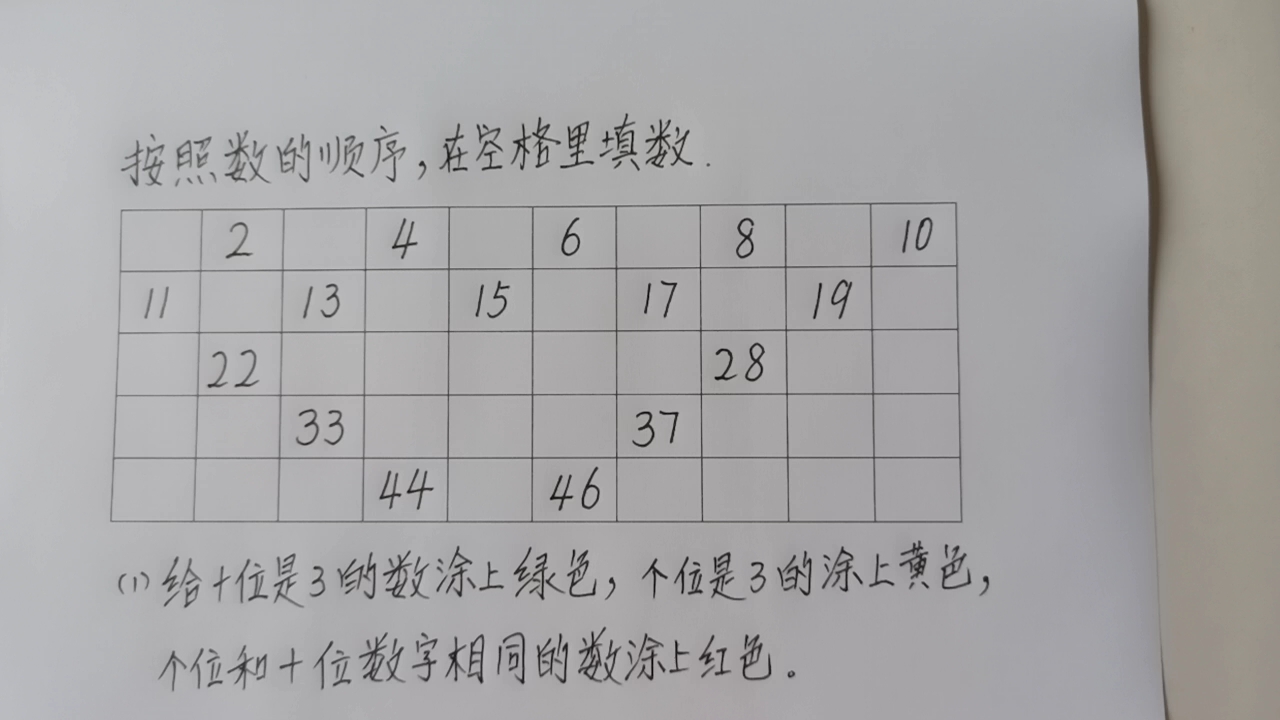 按照数的顺序,在空格里填数.
2 4 6 8 10
11 13 15 17 19
22 28
33 37
44 46
(1)给十位是3的数涂上绿色,个位是3的涂上黄色,
个位和十位数字相同的数涂上红色。